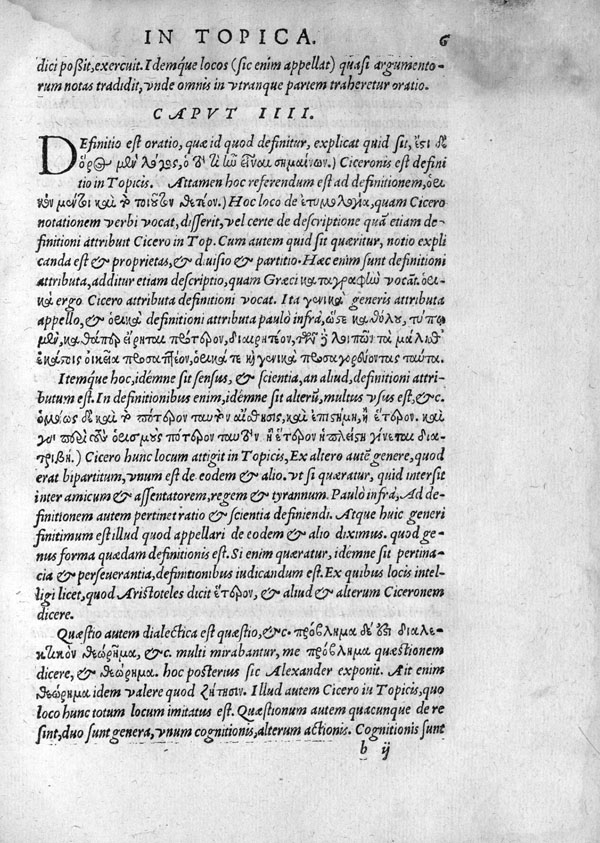 IN TOPICA. 6
dici poßit, exercuit. Idemq́ue locos (sic enim appellat) quasi argumento-
rum notas tradidit, vnde omnis in vtranque partem traheretur oratio.
CAPVT IIII.
DEfinitio est oratio, quæ id quod definitur, explicat quid sit, ἔστι δὲ
ὅρος μὲν λόγος, ὁ τὸ τί ἦν εἶναι σημαίνων.) Ciceronis est defini
tio in Topicis. Attamen hoc referendum est ad definitionem, ὁρι
κὸν μέντοι καὶ τὸ τοιοῦτον θετέον.) Hoc loco de ἐτυμολογία, quam Cicero
notationem verbi vocat, disserit, vel certe de descriptione quā etiam de-
finitioni attribuit Cicero in Top. Cum autem quid sit quæritur, notio expli
canda est & proprietas, & diuisio & partitio. Hæc enim sunt definitioni
attributa, additur etiam descriptio, quam Græci καταγραφὼ vocāt. ὁρι-
κὰ ergo Cicero attributa definitioni vocat. Ita γενικὰ generis attributa
appello, & ὁρικὰ definitioni attributa paulò infrà, ὥστε καθόλου, τύπῳ
μὲν, καθάπερ εἴρηται πρότερον, διαιρετέον, τῶν δὲ λοιπῶν τὰ μάλιθ᾽
ἑκάστοις οἰκεῖα προσαπτέον, ὁρικά τε καὶ γενικὰ προσαγορεύοντας ταῦτα.
Itemq́ue hoc, idemne sit sensus, & scientia, an aliud, definitioni attri-
butum est. In definitionibus enim, idémne sit alterū, multus vsus est, &c.
ὁμοίως δὲ καὶ τὸ πότερον ταυτὸν αἴσθησις, καὶ ἐπιστήμη, ἢ ἕτερον. καὶ
γὰρ περὶ τοὺς ὁρισμοὺς πότερον ταυτὸν ἢ ἕτερον ἡ πλείστη γίνεται δια-
τριβή.) Cicero hunc locum attigit in Topicis, Ex altero autē genere, quod
erat bipartitum, vnum est de eodem & alio. vt si quæratur, quid intersit
inter amicum & assentatorem, regem & tyrannum. Paulò infrà, Ad de-
finitionem autem pertinet ratio & scientia definiendi. Atque huic generi
finitimum est illud quod appellari de eodem & alio diximus. quod ge-
nus forma quædam definitionis est. Si enim quæratur, idemne sit pertina-
cia & perseuerantia, definitionibus iudicandum est. Ex quibus locis intel-
ligi licet, quod Aristoteles dicit ἕτερον, & aliud & alterum Ciceronem
dicere.
Quæstio autem dialectica est quæstio, &c. πρόβλημα δέ ἐστι διαλε-
κτικὸν θεώρημα, &c. multi mirabantur, me πρόβλημα quæstionem
dicere, & θεώρημα. hoc posterius sic Alexander exponit. Ait enim
θεώρημα idem valere quod ζήτησιν. Illud autem Cicero in Topicis, quo
loco hunc totum locum imitatus est. Quæstionum autem quacunque de re
sint, duo sunt genera, vnum cognitionis, alterum actionis. Cognitionis sunt
b ij